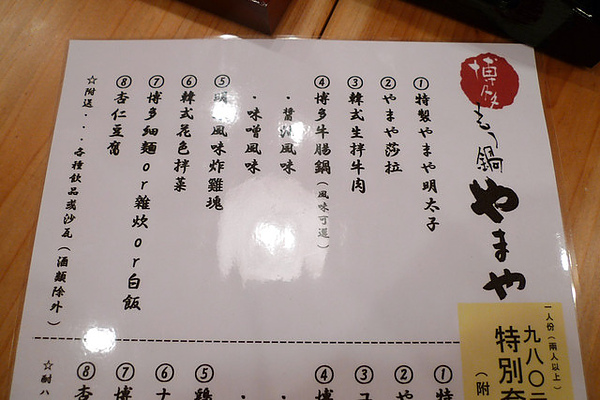 博多もつ鍋 やまや
①特製やまや明太子
②やまや莎拉
③韓式生拌牛肉
④博多牛腸鍋(風味可選)
・醬油風味
・味噌風味
⑤明太風味炸雞塊
⑥韓式花色拌菜
⑦博多細麵or雜炊or白飯
⑧杏仁豆腐
☆附送・・・各種飲品或沙瓦(酒類除外)
一人份(兩人以上)
九八〇元
特別
(附
①特
②や
③
④博
・
・
⑤鶏
⑥ナ
⑦博
⑧杏
☆酎ハ